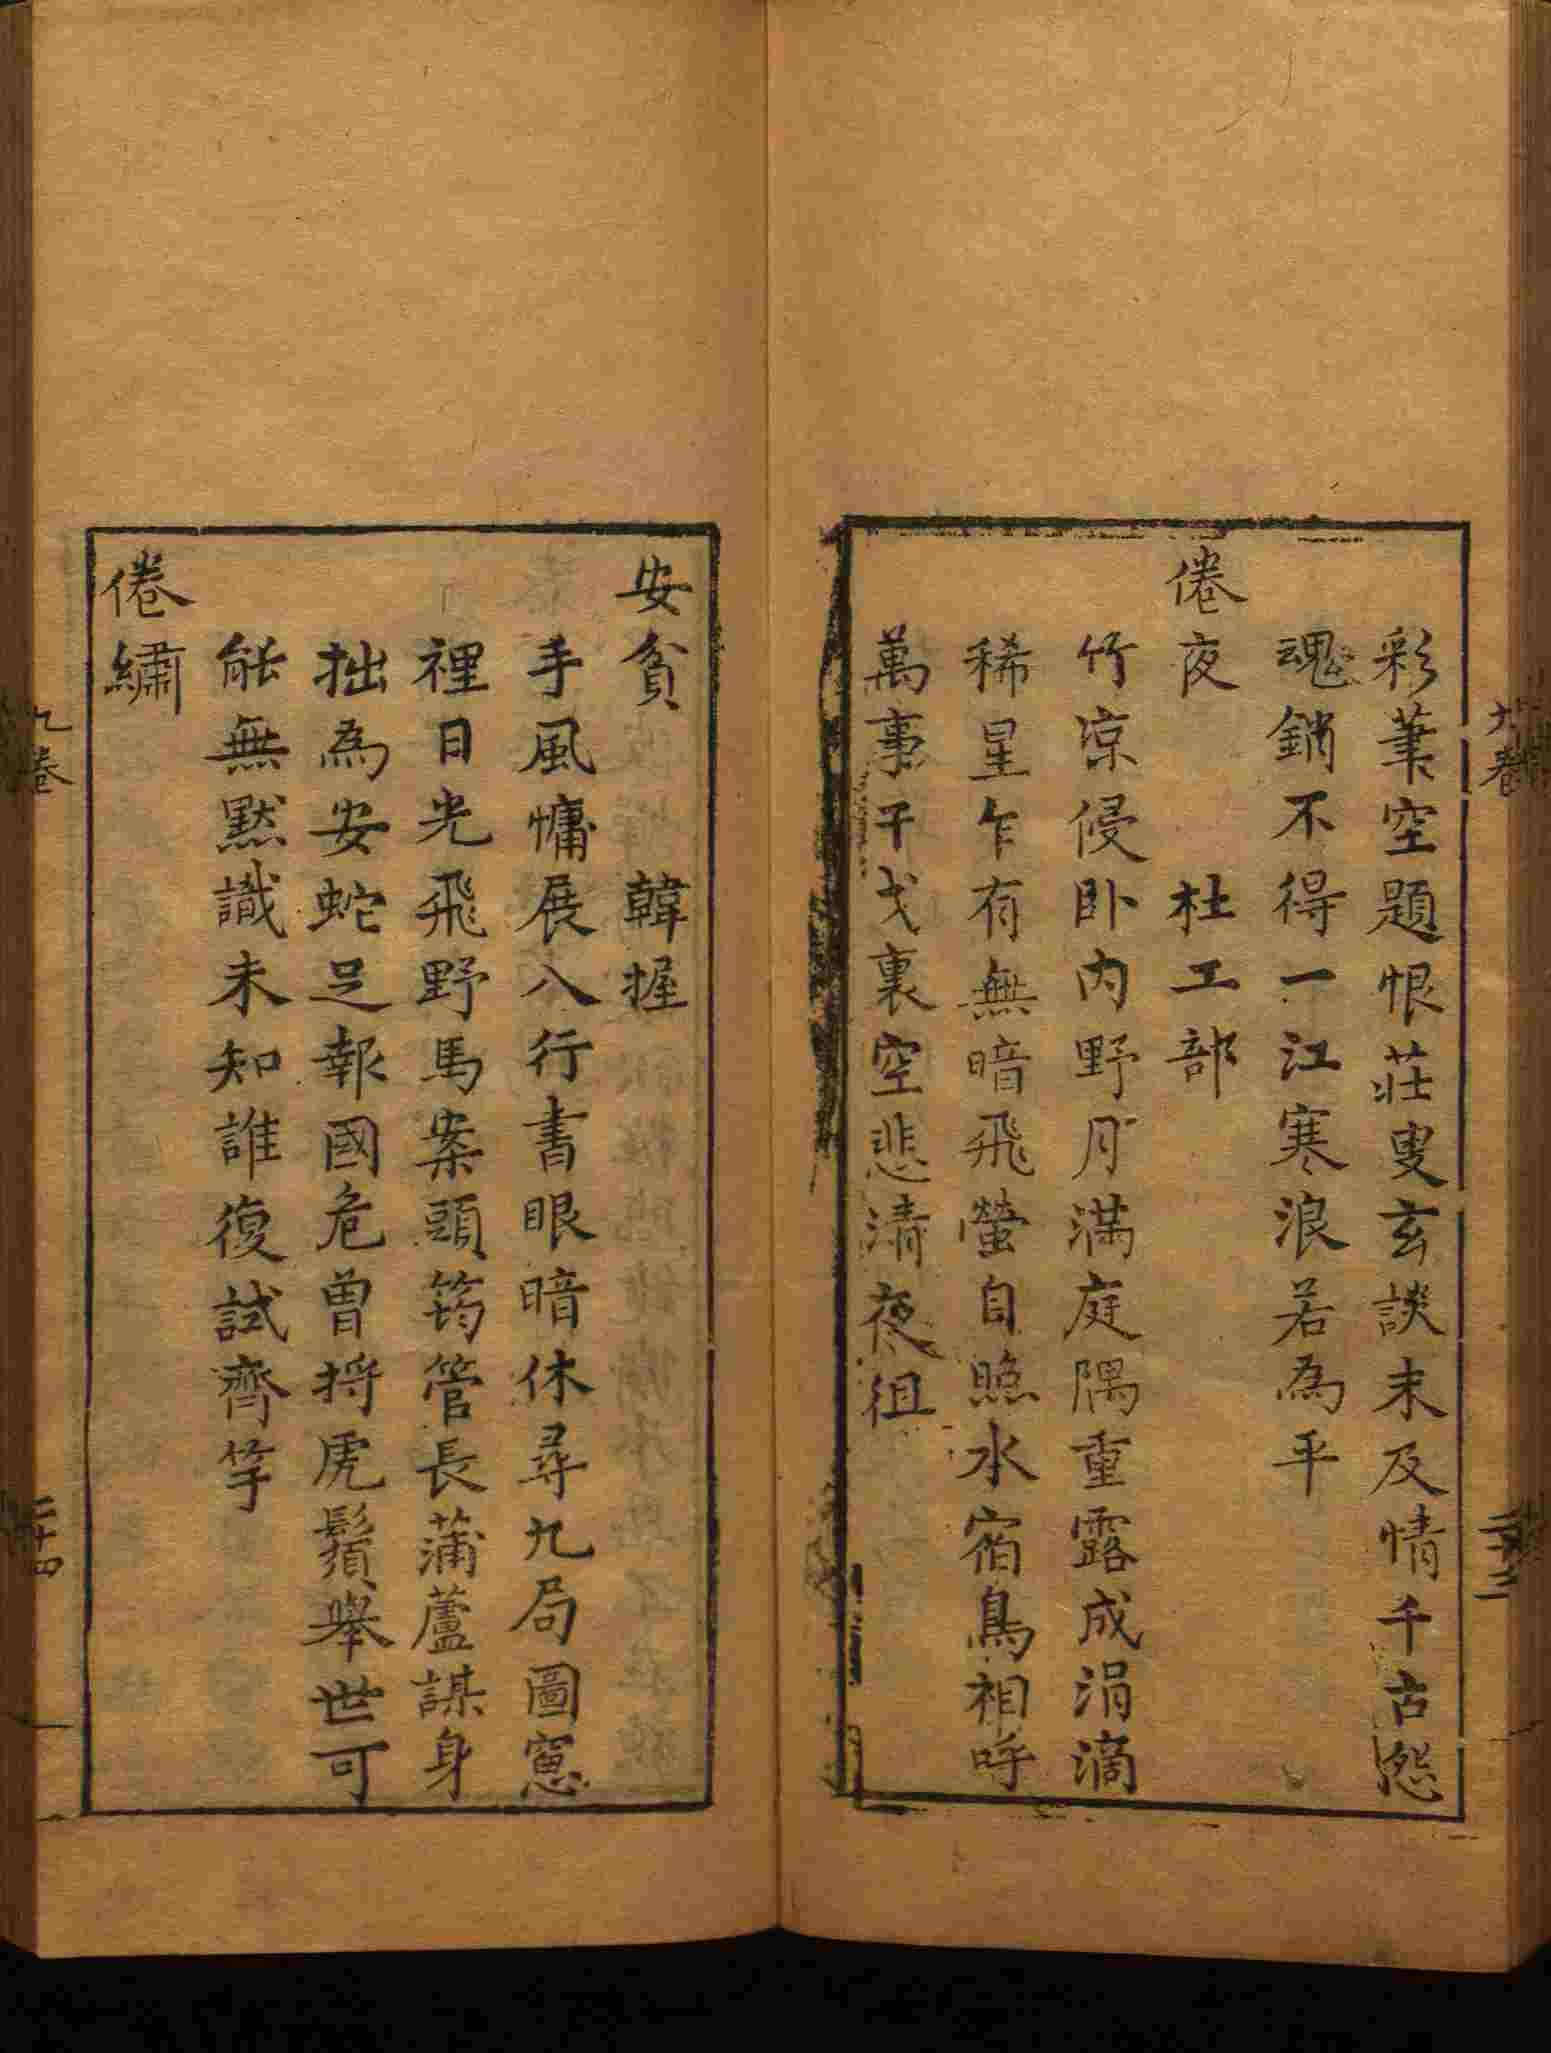 彩筆空題恨莊叟玄談未及情千古怨
魂銷不得一江寒浪若為平
倦夜　　杜工部
竹凉侵卧内野月滿庭隅重露成涓滴
稀星乍有無暗飛螢自照水宿鳥相呼
萬事干戈裏空悲清夜徂
安貧　　韓握
手風慵展八行書眼暗休尋九局圖窻
裡日光飛野馬案頭筠管長蒲蘆謀身
拙為安蛇足報國危曾捋虎鬚舉世可
能無黙識未知誰復試齊竽
倦繡
九卷
二十四